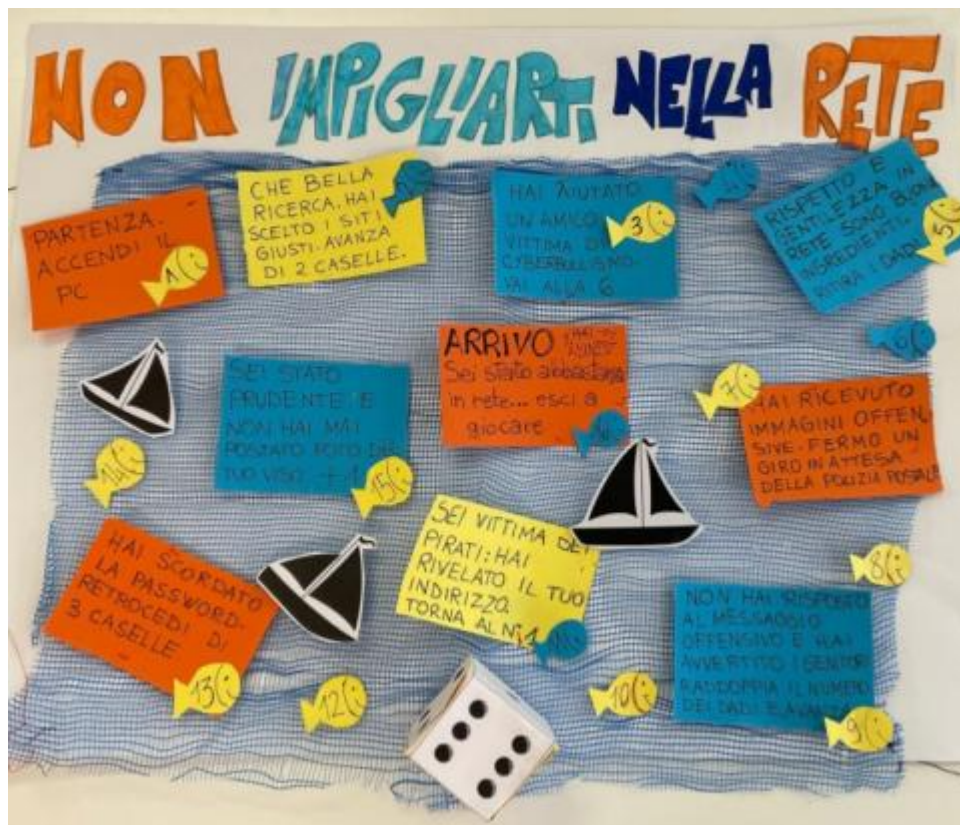 NON IMPIGLIARTI NELLA RETE
PARTENZA.
ACCENDI IL
PC
1
CHE BELLA
RICERCA. HAI
SCELTO I SITI
GIUSTI. AVANZA
DI 2 CASELLE.
2
HAI AIUTATO
UN AMICO
VITTIMA DI
CYBERBULLISMO.
VAI ALLA 6
3
4
RISPETTO E
GENTILEZZA IN
RETE SONO BUONI
INGREDIENTI
RITIRA I DADI
5
6
7
HAI RICEVUTO
IMMAGINI OFFEN
SIVE. FERMO UN
GIRO IN ATTESA
DELLA POLIZIA POSTALE
8
NON HAI RISPOSTO
AL MESSAGGIO
OFFENSIVO E HAI
AVVERTITO I GENITORI
RADDOPPIA IL NUMERO
DEI DADI E AVANZA
9
10
SEI VITTIMA DEI
PIRATI: HAI
RIVELATO IL TUO
INDIRIZZO.
TORNA AL N° 1
11
12
HAI SCORDATO
LA PASSWORD.
RETROCEDI DI
3 CASELLE
13
14
SEI STATO
PRUDENTE E
NON HAI MAI
POSTATO FOTO DEL
TUO VISO. + 1
15
ARRIVO
Sei stato abbastanza
in rete... esci a
giocare